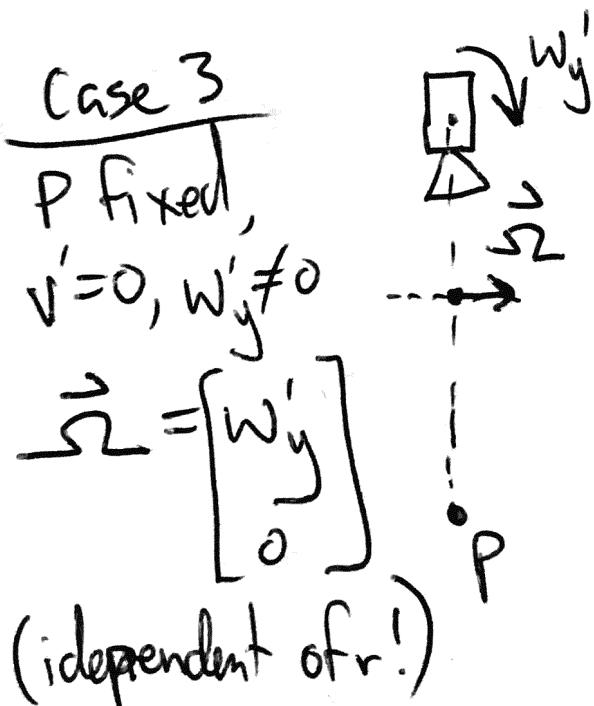 Case 3
P fixed,
v'=0, w'y≠0
Ω⃗ = [w'y
0]
(idependent of r!)
w'y
Ω⃗
P